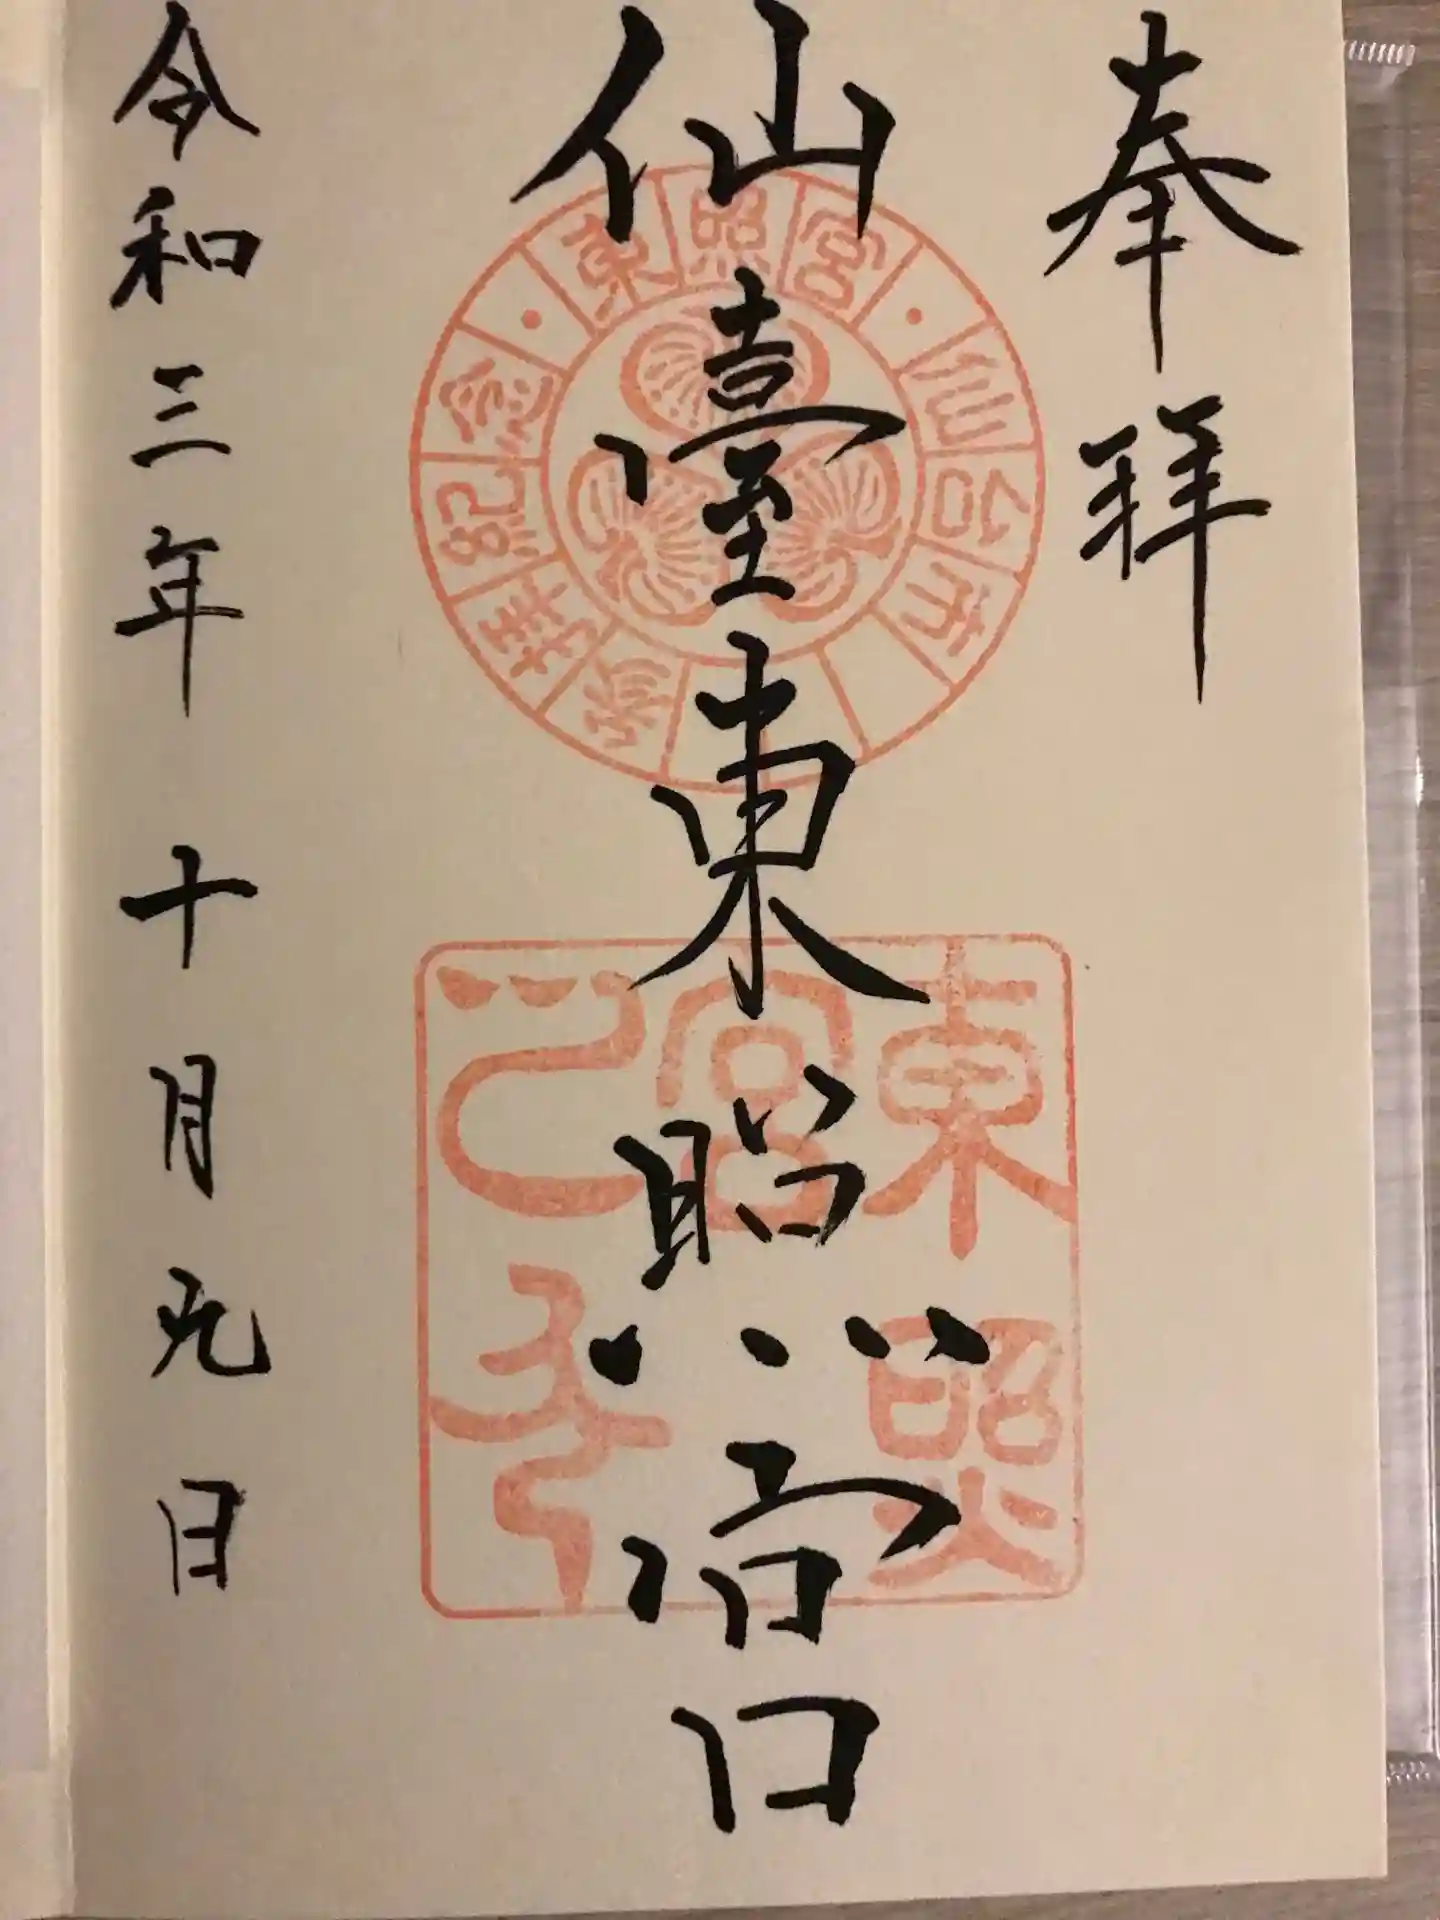 奉拝
仙臺東照宮
令和三年十月九日
東照宮
仙台市
参拝紀念
東照宮之印